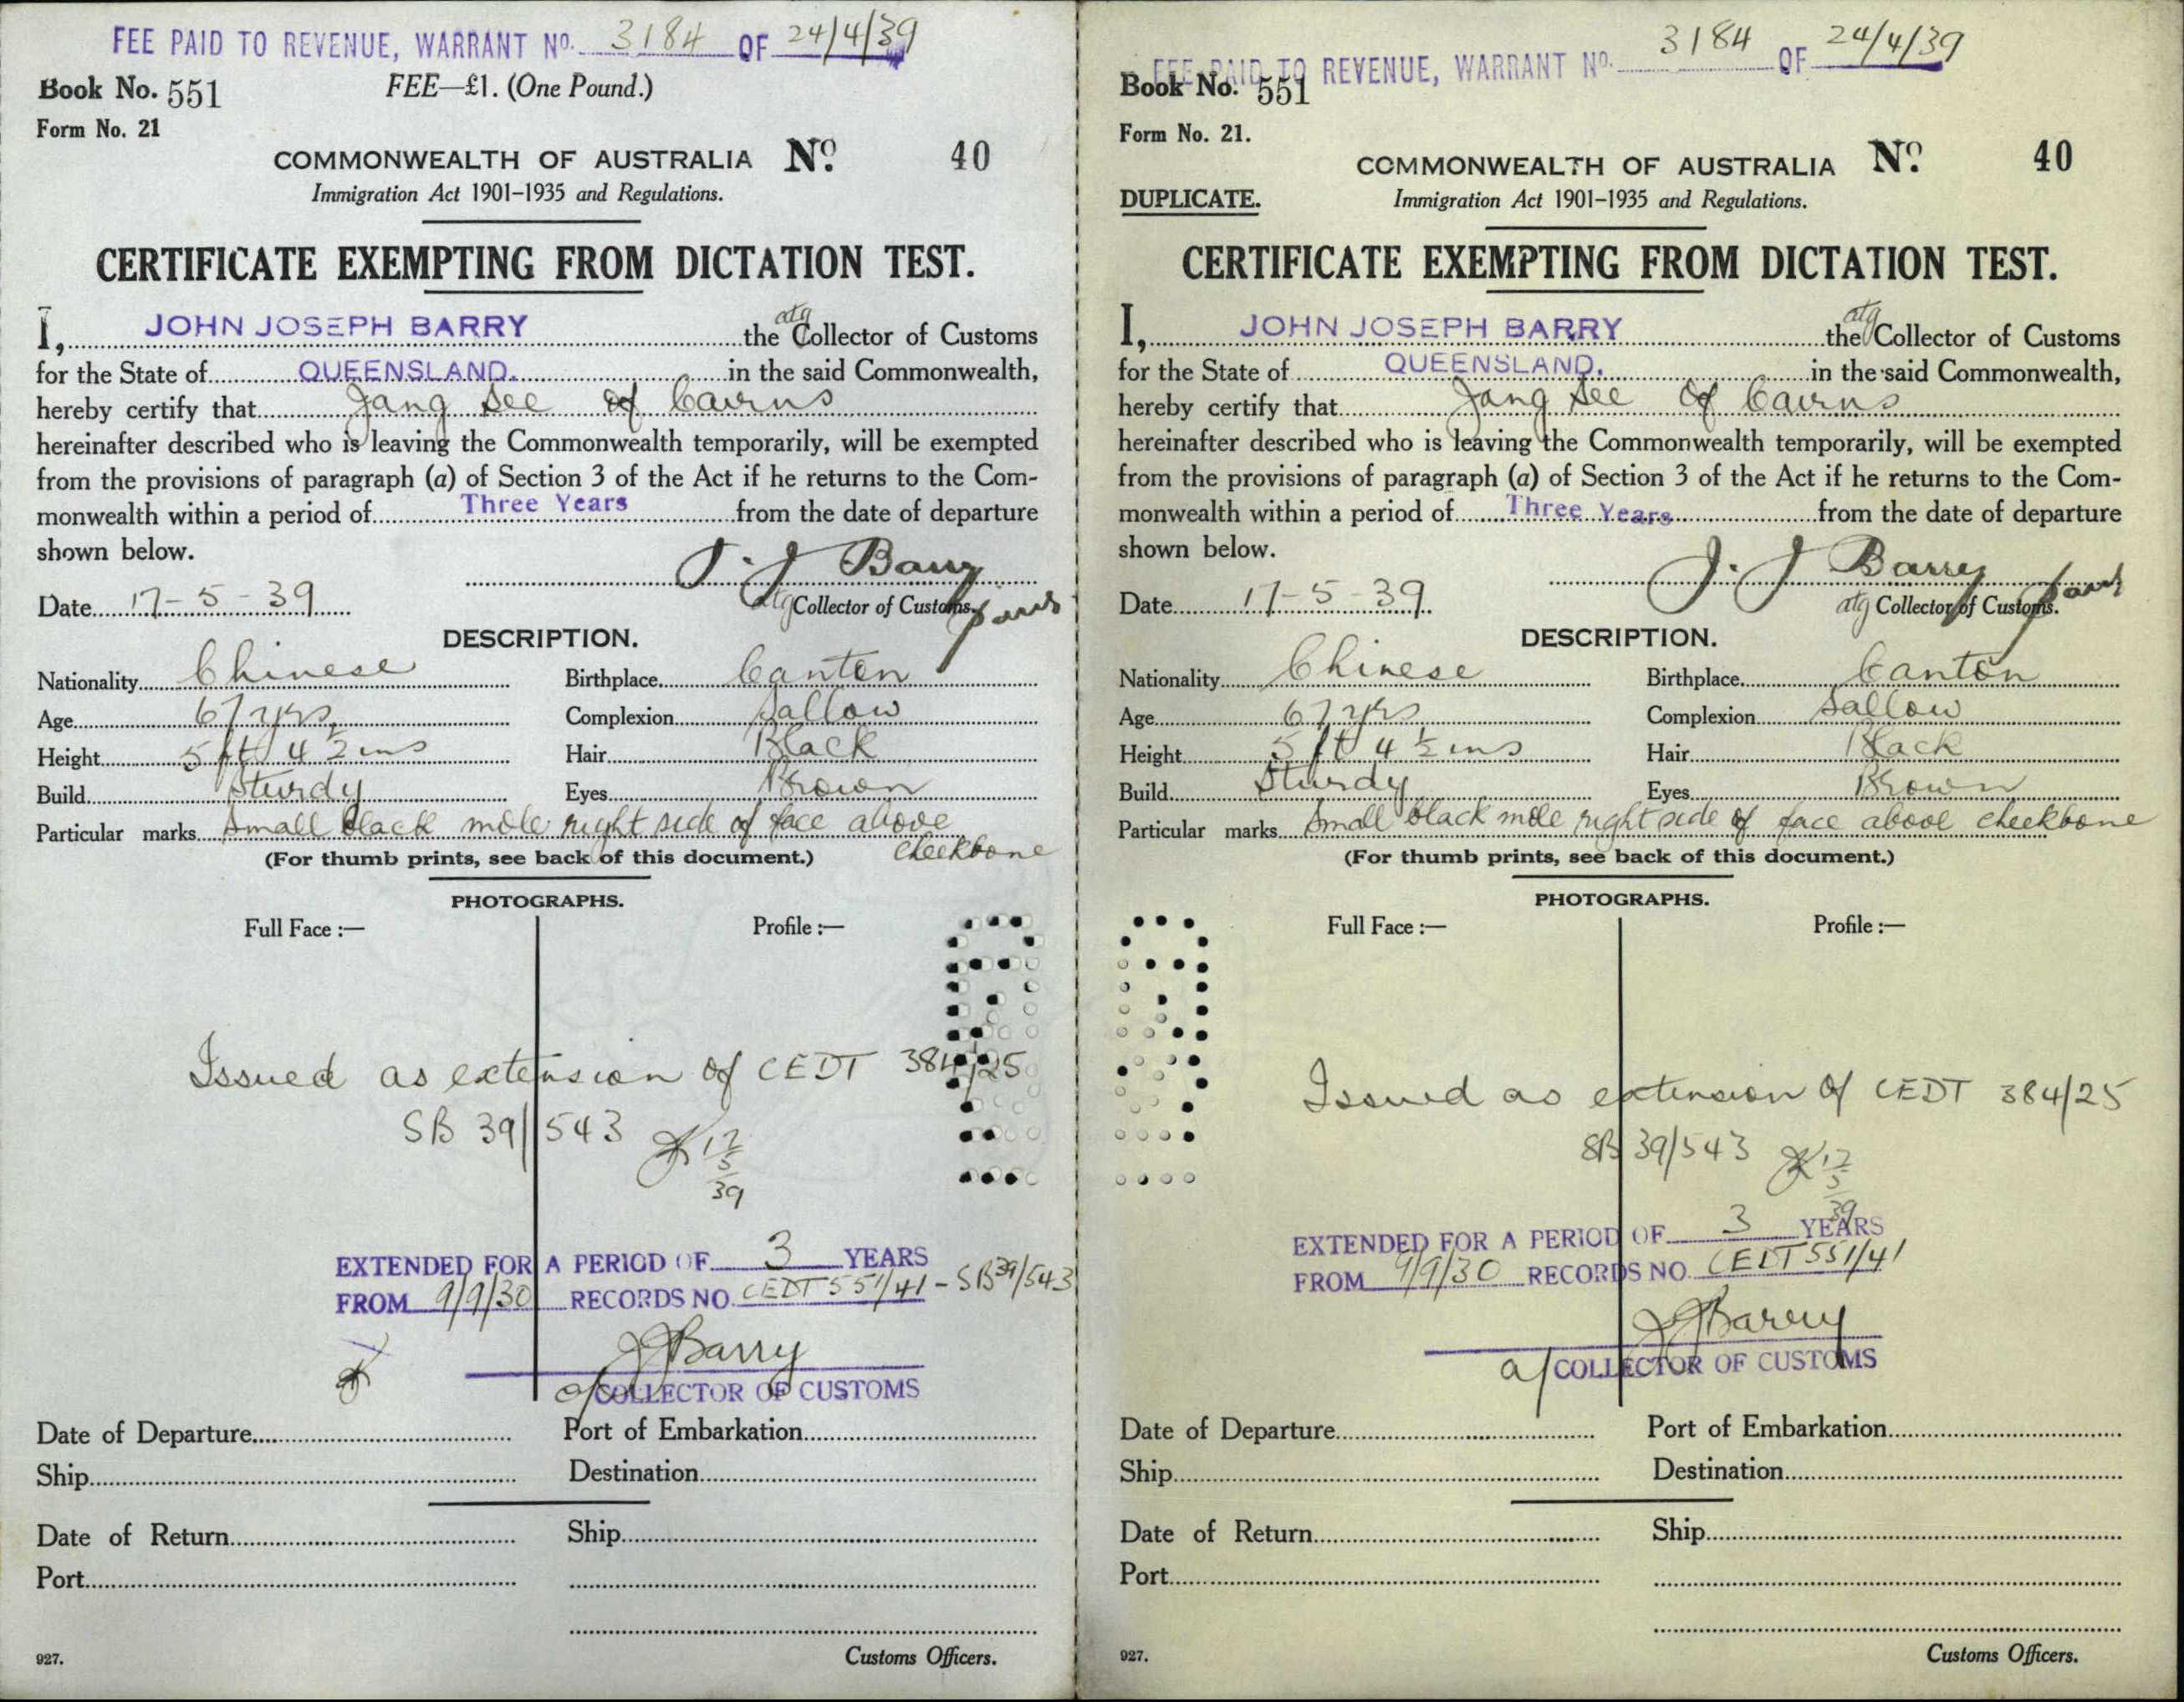 FEE PAID TO REVENUE, WARRANT No. 3184 OF 24/4/39
Book No. 551 FEE—£1. (One Pound.)
Form No. 21
COMMONWEALTH OF AUSTRALIA No. 40
Immigration Act 1901–1935 and Regulations.
CERTIFICATE EXEMPTING FROM DICTATION TEST.
I, JOHN JOSEPH BARRY the atg Collector of Customs
for the State of QUEENSLAND. in the said Commonwealth,
hereby certify that Jang See of Cairns
hereinafter described who is leaving the Commonwealth temporarily, will be exempted
from the provisions of paragraph (a) of Section 3 of the Act if he returns to the Com-
monwealth within a period of Three Years from the date of departure
shown below.
J. J Barry
Date 17-5-39 atg Collector of Customs.
DESCRIPTION.
Nationality Chinese Birthplace Canton
Age 67 yrs Complexion Sallow
Height 5 ft 4 ½ ins Hair Black
Build Sturdy Eyes Brown
Particular marks Small black mole right side of face above
cheekbone
(For thumb prints, see back of this document.)
PHOTOGRAPHS.
Full Face :— Profile :—
Issued as extension of CEDT 384/25
SB 39/543
12
5
39
EXTENDED FOR A PERIOD OF 3 YEARS
FROM 9/9/30 RECORDS NO. CEDT 551/41 - SB39/543
JJBarry
a/COLLECTOR OF CUSTOMS
Date of Departure Port of Embarkation
Ship Destination
Date of Return Ship
Port
927. Customs Officers.
FEE PAID TO REVENUE, WARRANT No. 3184 OF 24/4/39
Book No. 551
Form No. 21.
COMMONWEALTH OF AUSTRALIA No. 40
DUPLICATE. Immigration Act 1901–1935 and Regulations.
CERTIFICATE EXEMPTING FROM DICTATION TEST.
I, JOHN JOSEPH BARRY the atg Collector of Customs
for the State of QUEENSLAND. in the said Commonwealth,
hereby certify that Jang See of Cairns
hereinafter described who is leaving the Commonwealth temporarily, will be exempted
from the provisions of paragraph (a) of Section 3 of the Act if he returns to the Com-
monwealth within a period of Three Years from the date of departure
shown below.
J. J Barry
Date 17-5-39. atg Collector of Customs.
DESCRIPTION.
Nationality Chinese Birthplace Canton
Age 67 yrs Complexion Sallow
Height 5 ft 4 ½ ins Hair Black
Build Sturdy Eyes Brown
Particular marks Small black mole right side of face above cheekbone
(For thumb prints, see back of this document.)
PHOTOGRAPHS.
Full Face :— Profile :—
Issued as extension of CEDT 384/25
SB 39/543
12
5
39
EXTENDED FOR A PERIOD OF 3 YEARS
FROM 9/9/30 RECORDS NO. CEDT 551/41
JJBarry
a/COLLECTOR OF CUSTOMS
Date of Departure Port of Embarkation
Ship Destination
Date of Return Ship
Port
927. Customs Officers.